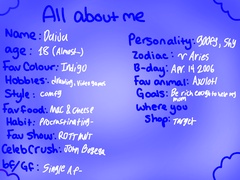 All about me
Name: Daiju
age: 18 (Almost~)
Fav Colour: Indigo
Hobbies: drawing, video games
Style: comfy
fav food: Mac & Cheese
Habit: Procrastinating-
Fav Show: ROTTMNT
Celeb Crush: John Boyega
bf/Gf: Single Af-
Personality: goofy, Shy
Zodiac: ♈ Aries
B-day: Apr. 14 2006
Fav animal: Axolotl
Goals: Be rich enough to help my mom
Where you
Shop: Target